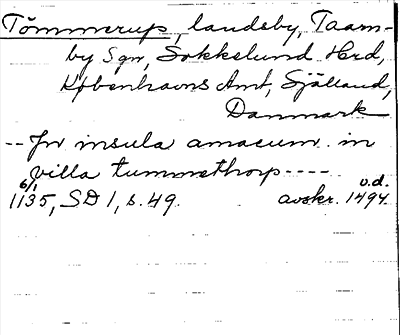 Tömmerup, landsby, Taarn-
by Sgn, Sokkelund Hrd,
Københavns Amt, Sjælland,
Danmark
-- Jn insula amacum in
villa tummethorp ----
6/1 u.d.
1135, SD 1, s. 49. avskr. 1494